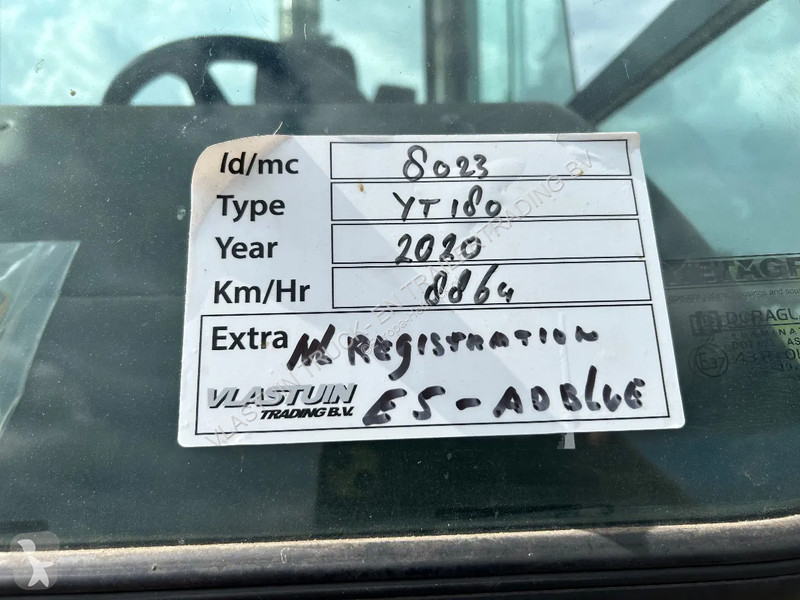 Id/mc 8023
Type YT180
Year 2020
Km/Hr 8864
Extra NL REGISTRATION
VLASTUIN E5-ADBLUE
TRADING B.V.
VLASTUIN TRUCK- EN TRAILERTRADING BV